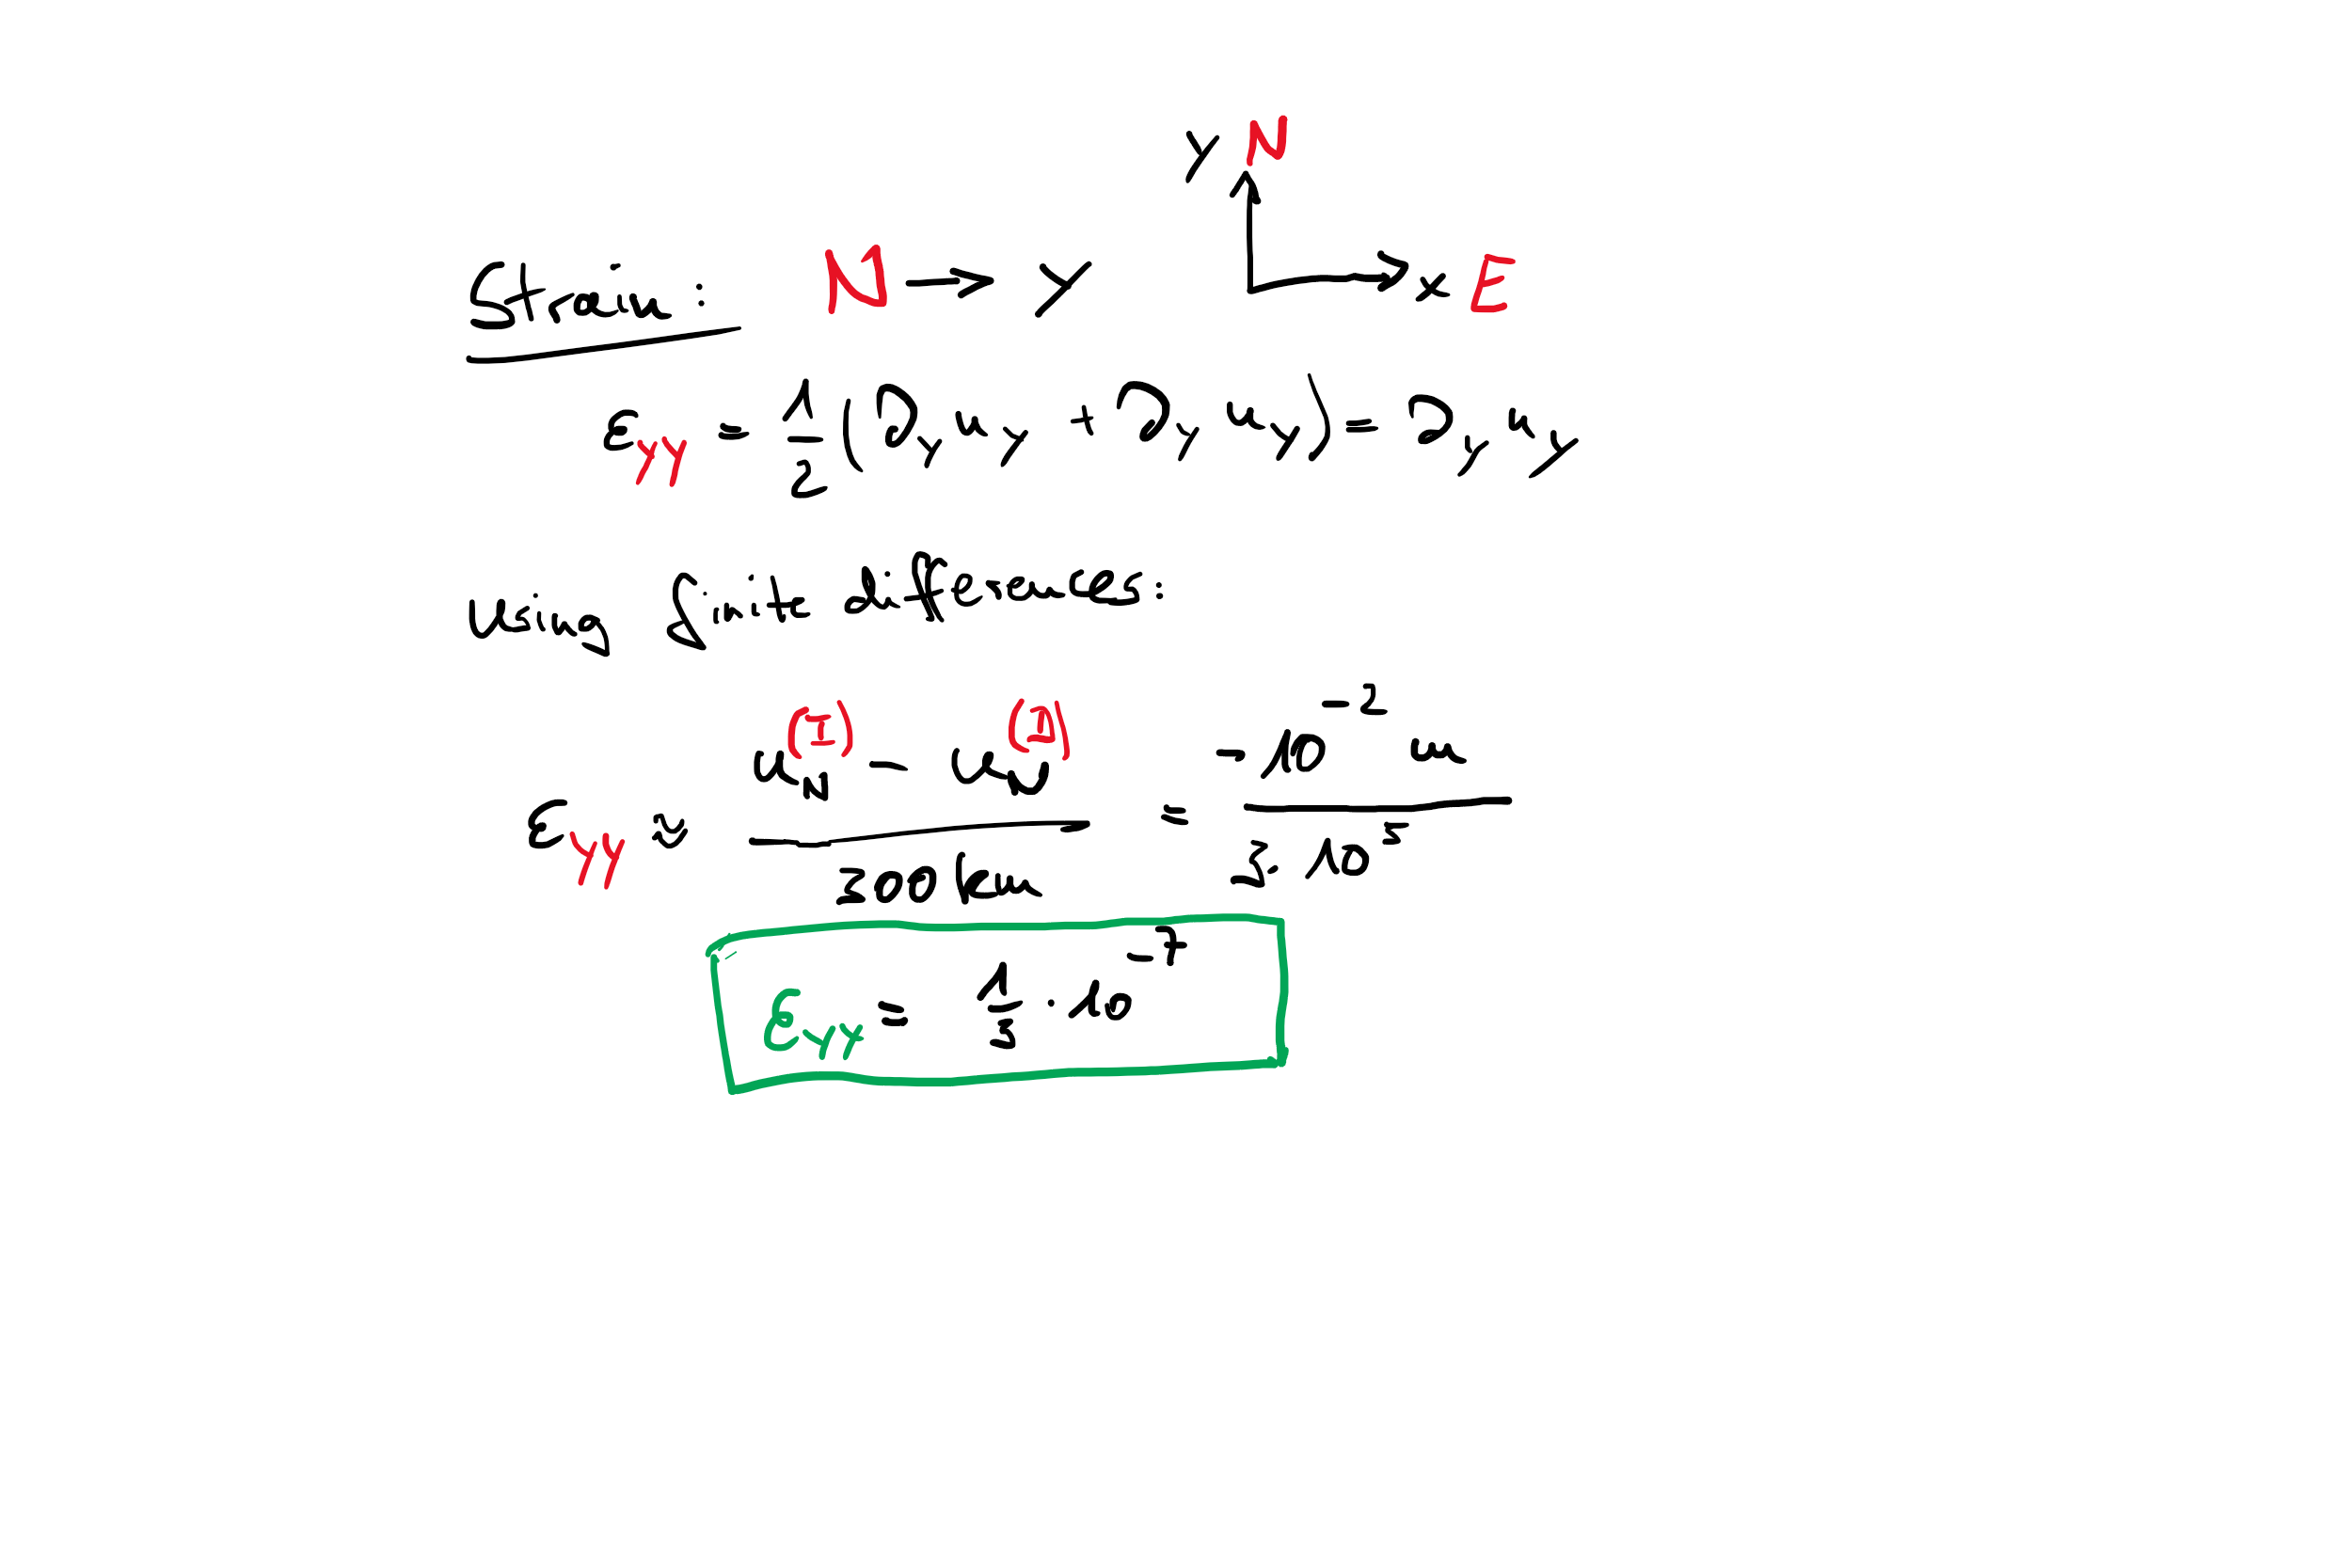 y N
Strain: N → y x E
ε_yy = 1/2 (∂_y u_y + ∂_y u_y) = ∂_y u_y
using finite differences:
ε_yy ≈ (u_N^(I) − u_N^(II)) / 300 km = −10^-2 m / 3·10^5
ε_yy = 1/3 · 10^-7